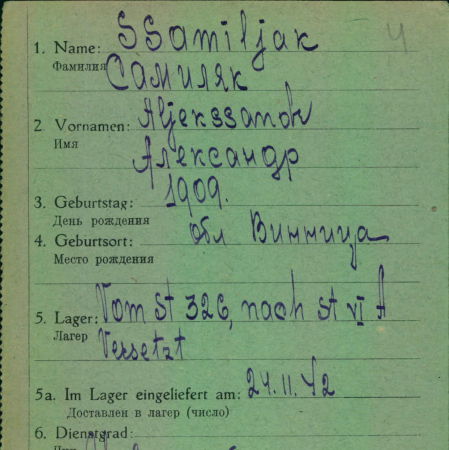 1. Name: SSamiljak
Фамилия Самиляк
4
2. Vornamen: Aljekssandr
Имя Александр
3. Geburtstag: 1909.
День рождения
4. Geburtsort: обл Винница
Место рождения
5. Lager: Vom St 326, nach St VI A
Лагер Versetzt
5a. Im Lager eingeliefert am: 24.11.42
Доставлен в лагер (число)
6. Dienstgrad: